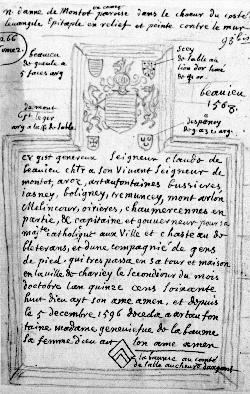 n. dame de Montot paroisse dans le chœur du costé
levangle Epitaphe en relief et peinte contre le mur
266
93
beaujeu
de gueule a
5 faces arg
scey
de sable au
lion d'or
de gr or.
beaujeu
1568
st leger
arg a la
de sable.
cy gist genereux Seigneur claudo de
beaujeu chlr a son Vivant Seigneur de
montot, aroz, artaufontaines bussieres,
iasney, boligney, tremuncey, mont arlon
Melincour, oirieres, chaumercennes en
partie, & capitaine et gouverneur pour sa
maieste catholique aux Ville et chasteau de
bleterans, et d'une compagnie de gens
de pied. qui trespassa en sa tour et maison
en la ville de chariey le second iour du mois
doctobre lan quinze cens soixante
huit dieu ayt son ame amen, et depuis
le 5 decembre 1596 deceda a artaufon
taine madame geneviefue de la baume
sa femme dieu ayt son ame amen
la baume au comté
de sable au chevron d'argent